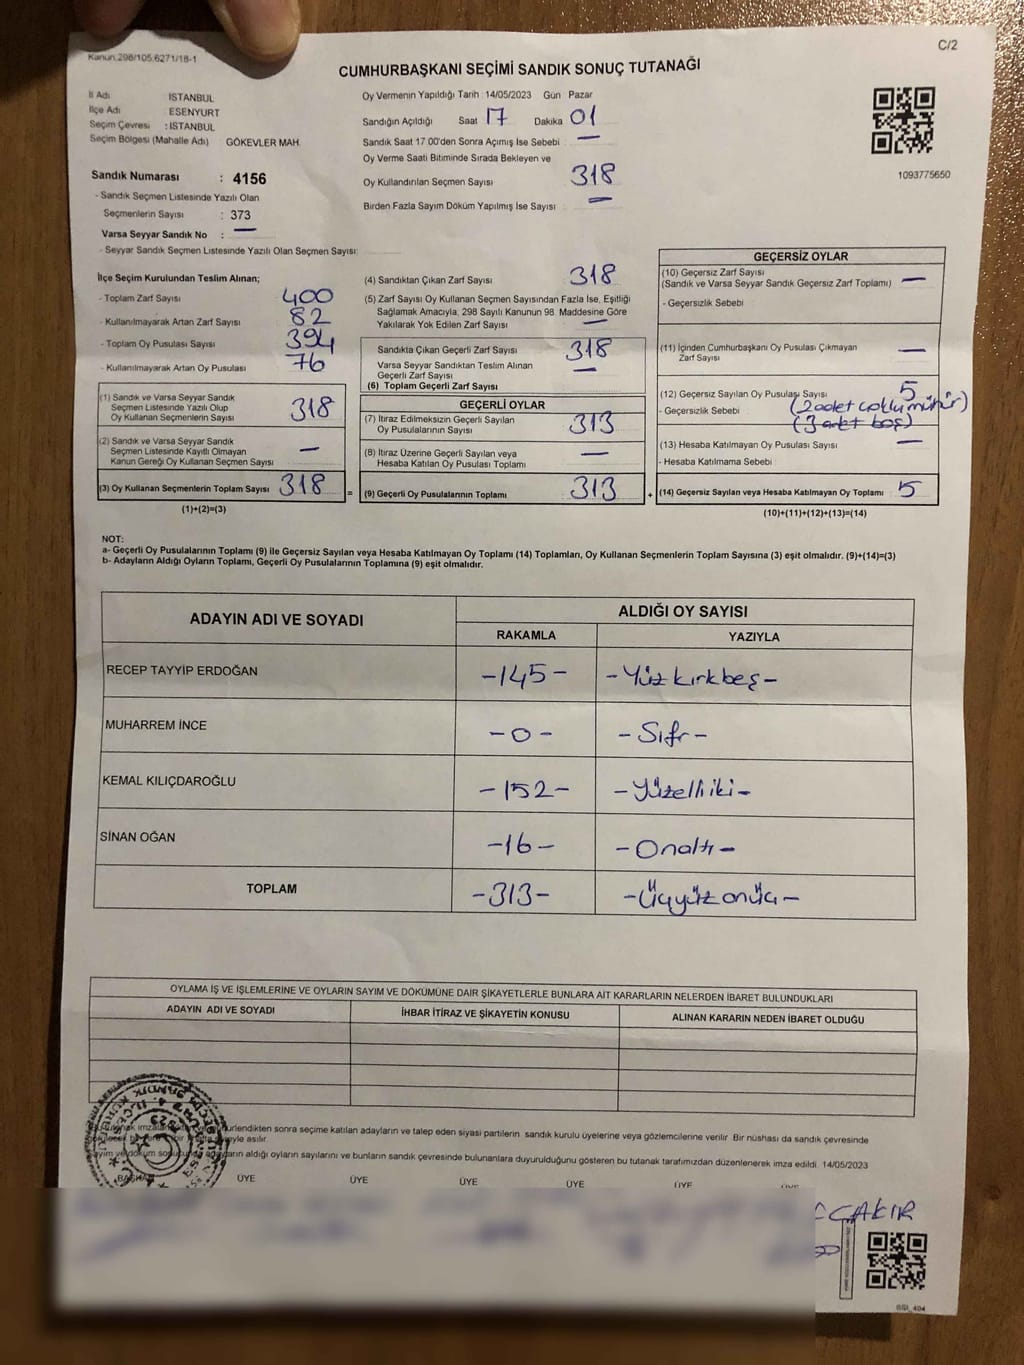 Kanun.298/105.6271/18-1
C/2
CUMHURBAŞKANI SEÇİMİ SANDIK SONUÇ TUTANAĞI
İl Adı İSTANBUL
İlçe Adı ESENYURT
Seçim Çevresi : İSTANBUL
Seçim Bölgesi (Mahalle Adı) GÖKEVLER MAH.
Sandık Numarası : 4156
- Sandık Seçmen Listesinde Yazılı Olan
Seçmenlerin Sayısı : 373
Varsa Seyyar Sandık No : —
- Seyyar Sandık Seçmen Listesinde Yazılı Olan Seçmen Sayısı:
Oy Vermenin Yapıldığı Tarih : 14/05/2023 Gün Pazar
Sandığın Açıldığı Saat 17 Dakika 01
Sandık Saat 17.00'den Sonra Açımış İse Sebebi —
Oy Verme Saati Bitiminde Sırada Bekleyen ve
Oy Kullandırılan Seçmen Sayısı 318
Birden Fazla Sayım Döküm Yapılmış İse Sayısı —
1093775650
İlçe Seçim Kurulundan Teslim Alınan;
- Toplam Zarf Sayısı 400
- Kullanılmayarak Artan Zarf Sayısı 82
- Toplam Oy Pusulası Sayısı 394
- Kullanılmayarak Artan Oy Pusulası 76
(1) Sandık ve Varsa Seyyar Sandık
Seçmen Listesinde Yazılı Olup
Oy Kullanan Seçmenlerin Sayısı 318
(2) Sandık ve Varsa Seyyar Sandık
Seçmen Listesinde Kayıtlı Olmayan
Kanun Gereği Oy Kullanan Seçmen Sayısı —
(3) Oy Kullanan Seçmenlerin Toplam Sayısı 318 =
(1)+(2)=(3)
(4) Sandıktan Çıkan Zarf Sayısı 318
(5) Zarf Sayısı Oy Kullanan Seçmen Sayısından Fazla İse, Eşitliği
Sağlamak Amacıyla, 298 Sayılı Kanunun 98. Maddesine Göre
Yakılarak Yok Edilen Zarf Sayısı —
Sandıkta Çıkan Geçerli Zarf Sayısı 318
Varsa Seyyar Sandıktan Teslim Alınan
Geçerli Zarf Sayısı —
(6) Toplam Geçerli Zarf Sayısı
GEÇERLİ OYLAR
(7) İtiraz Edilmeksizin Geçerli Sayılan
Oy Pusulalarının Sayısı 313
(8) İtiraz Üzerine Geçerli Sayılan veya
Hesaba Katılan Oy Pusulası Toplamı —
(9) Geçerli Oy Pusulalarının Toplamı 313 +
GEÇERSİZ OYLAR
(10) Geçersiz Zarf Sayısı
(Sandık ve Varsa Seyyar Sandık Geçersiz Zarf Toplamı) —
- Geçersizlik Sebebi
(11) İçinden Cumhurbaşkanı Oy Pusulası Çıkmayan
Zarf Sayısı —
(12) Geçersiz Sayılan Oy Pusulası Sayısı 5
- Geçersizlik Sebebi (2 adet çoklu mühür)
(3 adet boş)
(13) Hesaba Katılmayan Oy Pusulası Sayısı —
- Hesaba Katılmama Sebebi
(14) Geçersiz Sayılan veya Hesaba Katılmayan Oy Toplamı 5
(10)+(11)+(12)+(13)=(14)
NOT:
a- Geçerli Oy Pusulalarının Toplamı (9) ile Geçersiz Sayılan veya Hesaba Katılmayan Oy Toplamı (14) Toplamları, Oy Kullanan Seçmenlerin Toplam Sayısına (3) eşit olmalıdır. (9)+(14)=(3)
b- Adayların Aldığı Oyların Toplamı, Geçerli Oy Pusulalarının Toplamına (9) eşit olmalıdır.
ADAYIN ADI VE SOYADI ALDIĞI OY SAYISI
RAKAMLA YAZIYLA
RECEP TAYYİP ERDOĞAN -145- -Yüzkırkbeş-
MUHARREM İNCE -0- -Sıfır-
KEMAL KILIÇDAROĞLU -152- -Yüzelliiki-
SİNAN OĞAN -16- -Onaltı-
TOPLAM -313- -Üçyüzonüç-
OYLAMA İŞ VE İŞLEMLERİNE VE OYLARIN SAYIM VE DÖKÜMÜNE DAİR ŞİKAYETLERLE BUNLARA AİT KARARLARIN NELERDEN İBARET BULUNDUKLARI
ADAYIN ADI VE SOYADI İHBAR İTİRAZ VE ŞİKAYETİN KONUSU ALINAN KARARIN NEDEN İBARET OLDUĞU
sonra seçime katılan adayların ve talep eden siyasi partilerin sandık kurulu üyelerine veya gözlemcilerine verilir. Bir nüshası da sandık çevresinde
asılır.
aldığı oyların sayılarını ve bunların sandık çevresinde bulunanlara duyurulduğunu gösteren bu tutanak tarafımızdan düzenlenerek imza edildi. 14/05/2023
BAŞKAN ÜYE ÜYE ÜYE ÜYE ÜYE ÜYE
ÇAKIR